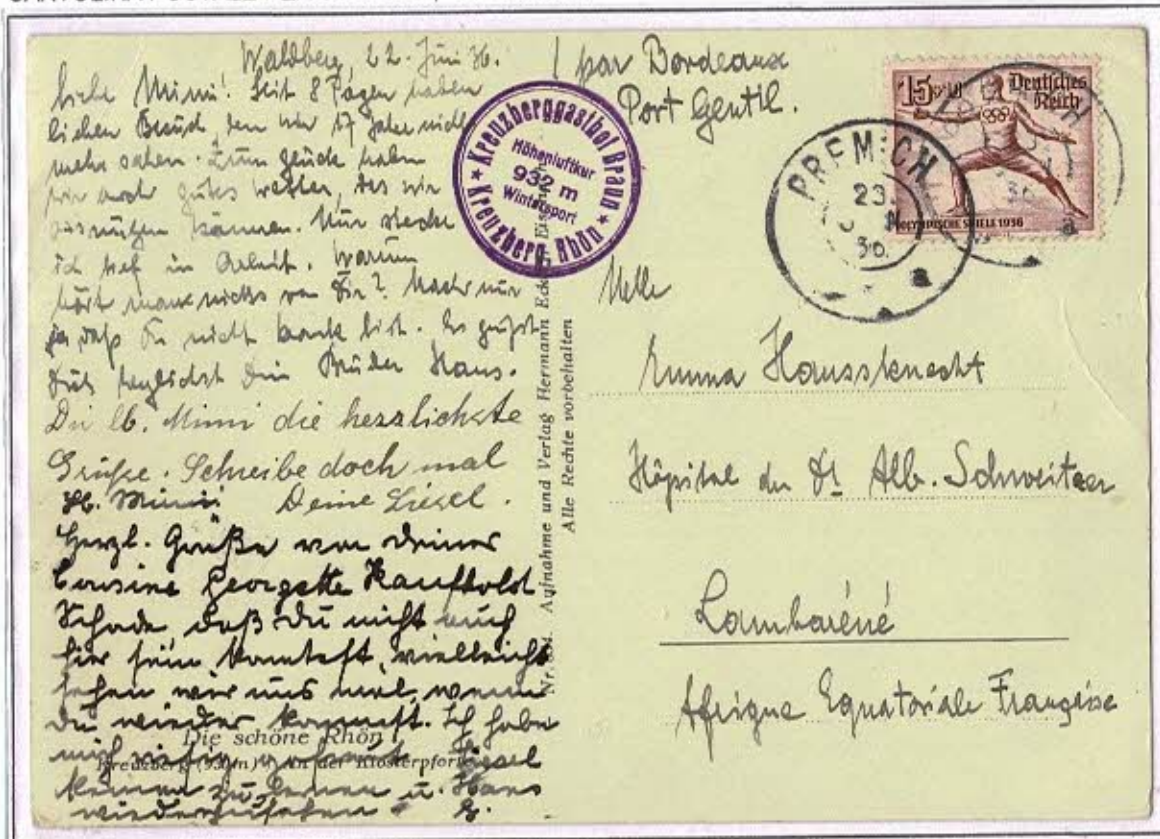 Waldberg, 22. Juni 36.
Liebe Mimi! Seit 8 Tagen haben
lieben Besuch, den wir 17 Jahre nicht
mehr sahen. Zum Glück haben
wir auch gutes Wetter, das wir
ausnützen können. Nur stecke
ich tief in Arbeit. Warum
hört man nichts von Dir? Macht nur
ja, daß Du nicht krank bist. Es grüßt
Dich herzlichst Dein Bruder Hans.
Dir lb. Mimi die herzlichste
Grüße. Schreibe doch mal
Deine Liesel.
Lb. Mimi
Herzl. Grüße von deiner
Cousine Georgette Kaufhold
Schade, daß Du nicht auch
hier sein konntest, vielleicht
sehen wir uns mal, wenn
Du wieder kommst. Ich habe
mich gefreut, Liesel
kennen zu lernen u. Hans
wiederzusehen G.
Die schöne Rhön
Kreuzberg (932 m) An der Klosterpforte
Kreuzberggasthof Braun
Höhenluftkur
932 m
Wintersport
Kreuzberg, Rhön
Aufnahme und Verlag Hermann
Alle Rechte vorbehalten
par Bordeaux
Port Gentil.
15
Deutsches
Reich
OLYMPISCHE SPIELE 1936
PREMICH
23.
36.
a
Melle
Emma Haussknecht
Hôpital du Dr Alb. Schweitzer
Lambaréné
Afrique Equatoriale Française